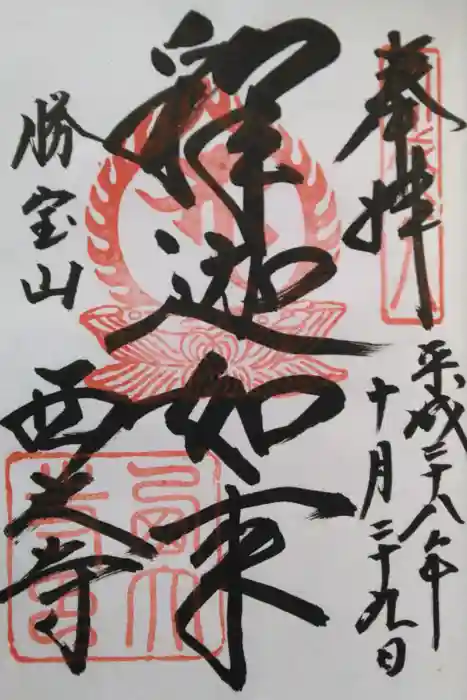 奉拝
平成二十八年
十月二十九日
釋迦如来
勝宝山
西大寺